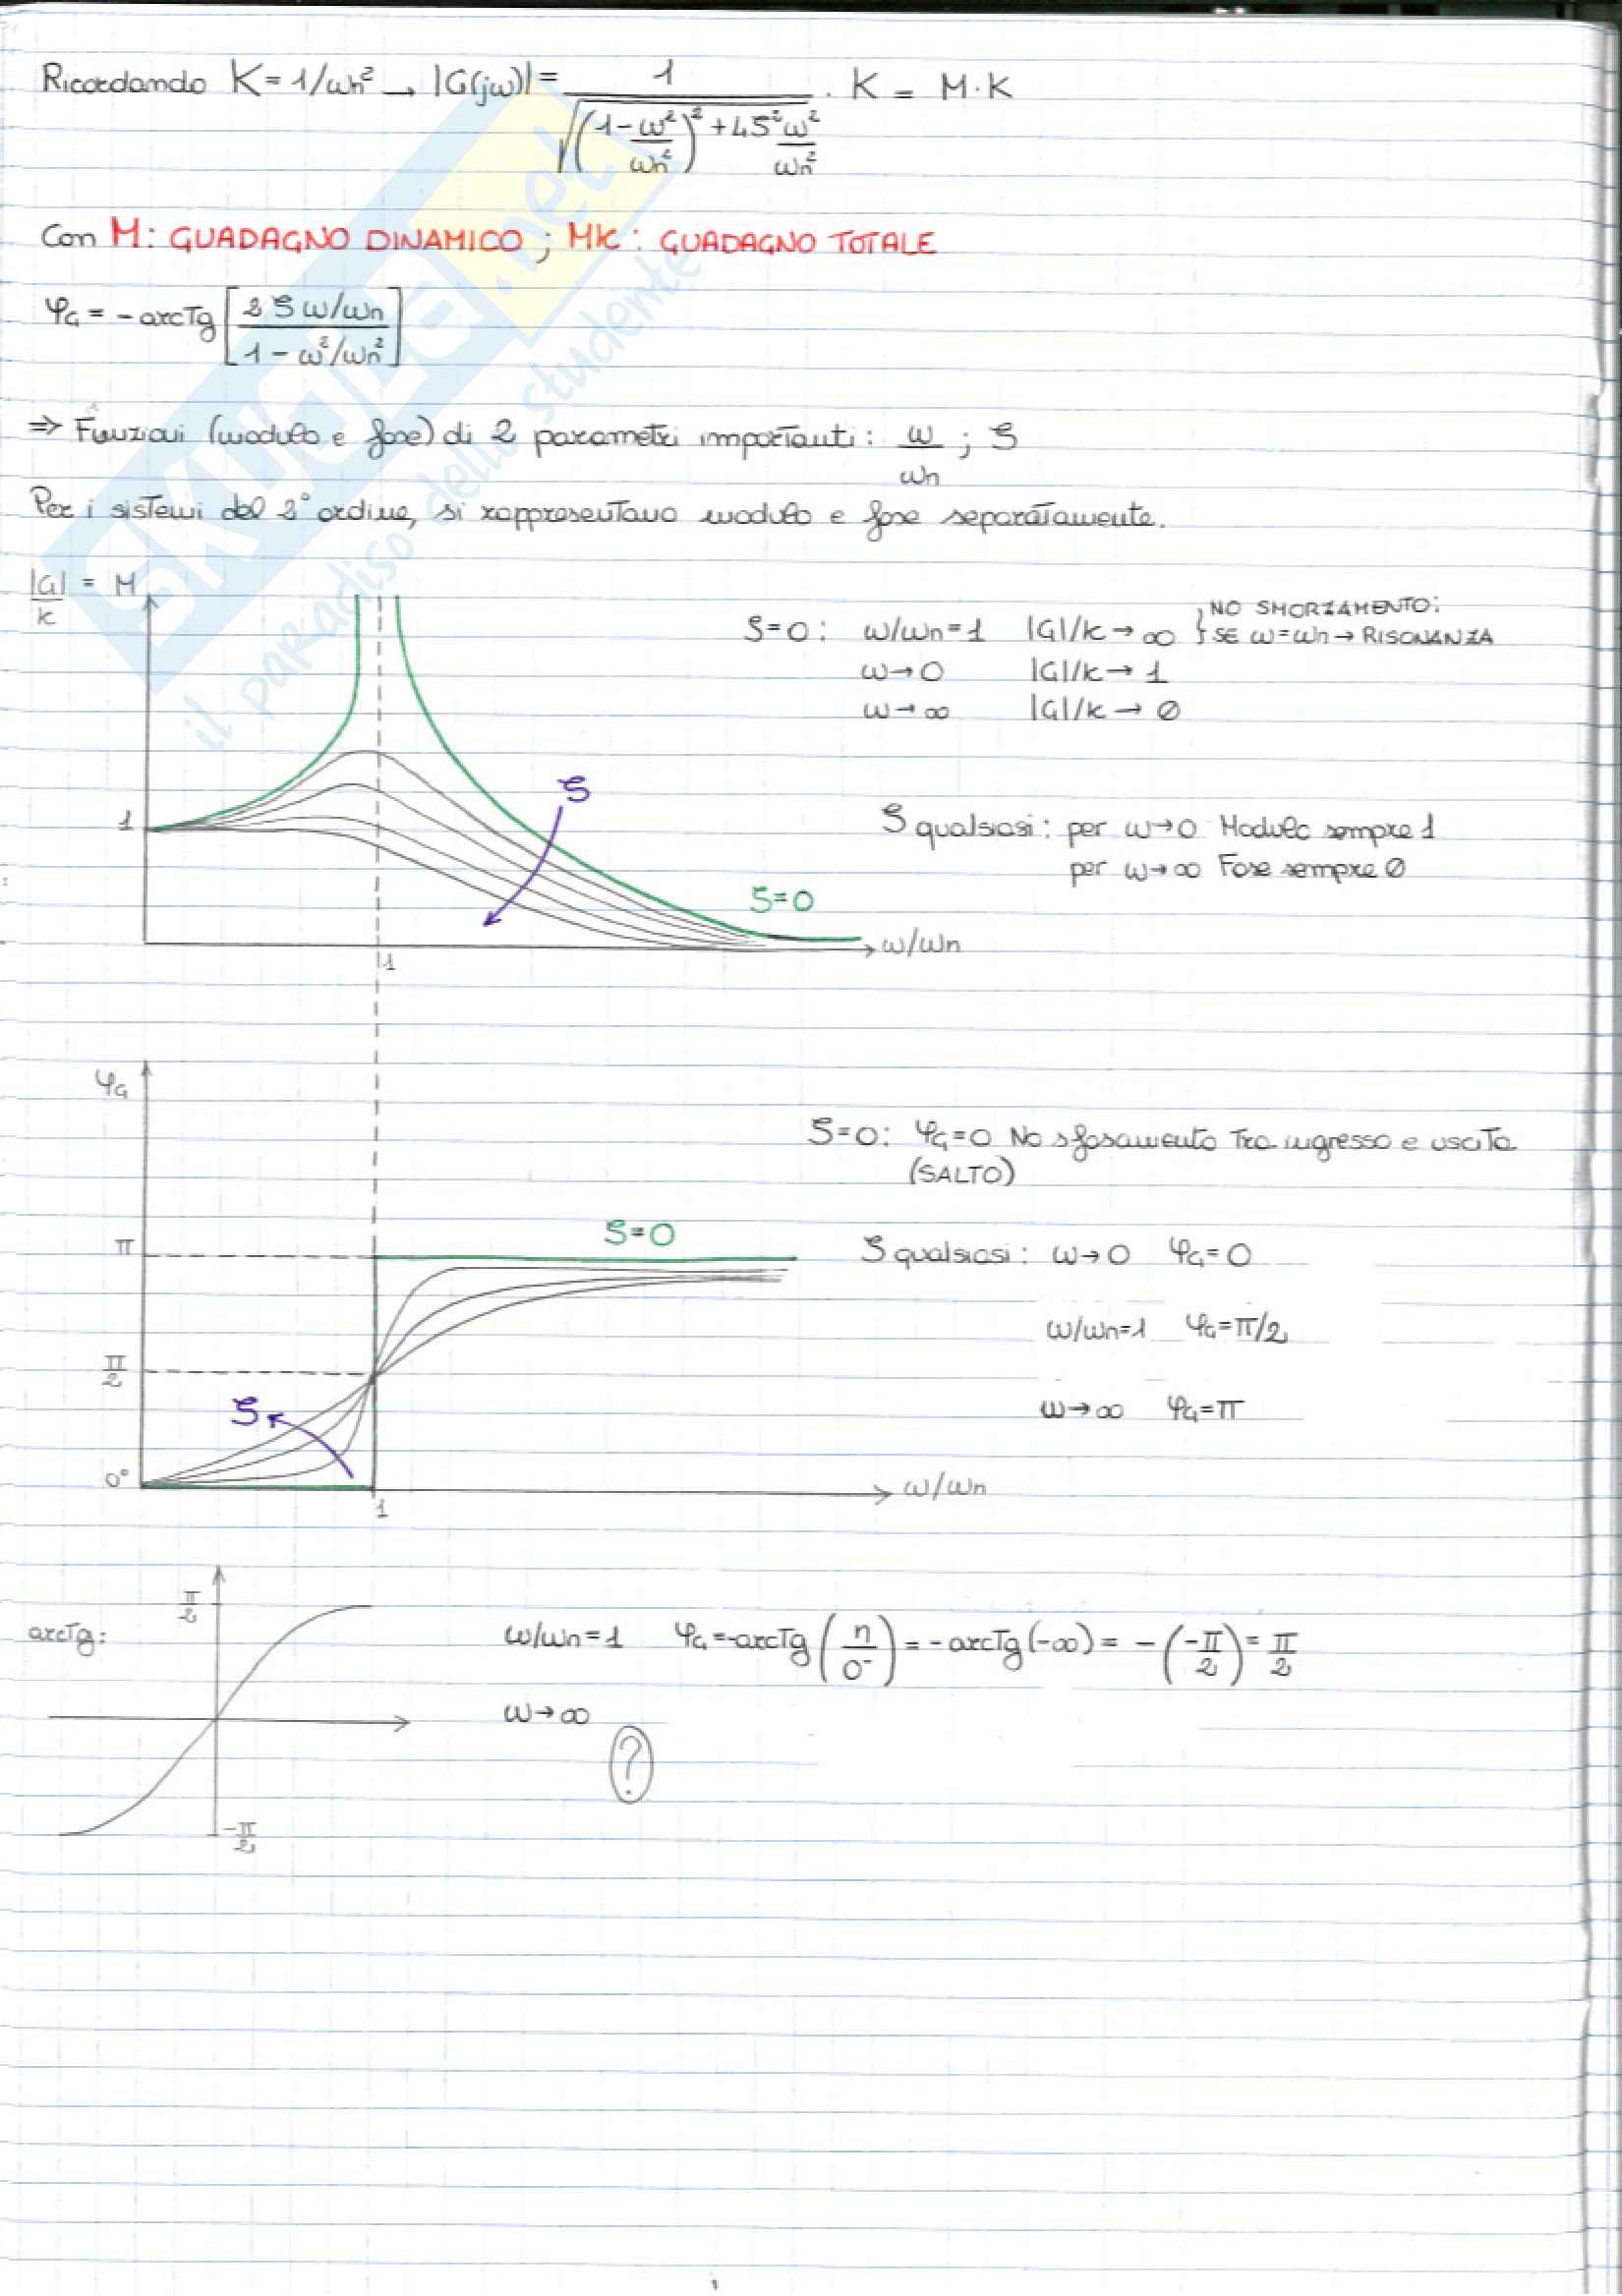 Ricordando K = 1/ωn² → |G(jω)| = 1 / √((1 - ω²/ωn²)² + 4ζ²ω²/ωn²) · K = M·K
Con M: GUADAGNO DINAMICO ; MK: GUADAGNO TOTALE
φG = -arcTg [2ζω/ωn / 1 - ω²/ωn²]
⇒ Funzioni (modulo e fase) di 2 parametri importanti: ω/ωn ; ζ
Per i sistemi del 2° ordine, si rappresentano modulo e fase separatamente.
|G|/K = M
ζ=0: ω/ωn=1 |G|/K → ∞ } NO SMORZAMENTO: SE ω=ωn → RISONANZA
ω→0 |G|/K → 1
ω→∞ |G|/K → Ø
ζ
1
ζ qualsiasi: per ω→0 Modulo sempre 1
per ω→∞ Fase sempre Ø
ζ=0
ω/ωn
1
φG
ζ=0: φG=0 No sfasamento tra ingresso e uscita
(SALTO)
ζ=0
π
ζ qualsiasi: ω→0 φG=0
ω/ωn=1 φG=π/2
π/2
ζ
ω→∞ φG=π
0°
ω/ωn
1
π/2
arcTg:
ω/ωn=1 φG=-arcTg (n/0⁻) = -arcTg(-∞) = -(-π/2) = π/2
ω→∞
?
-π/2
SKUOLA.net
il paradiso dello studente